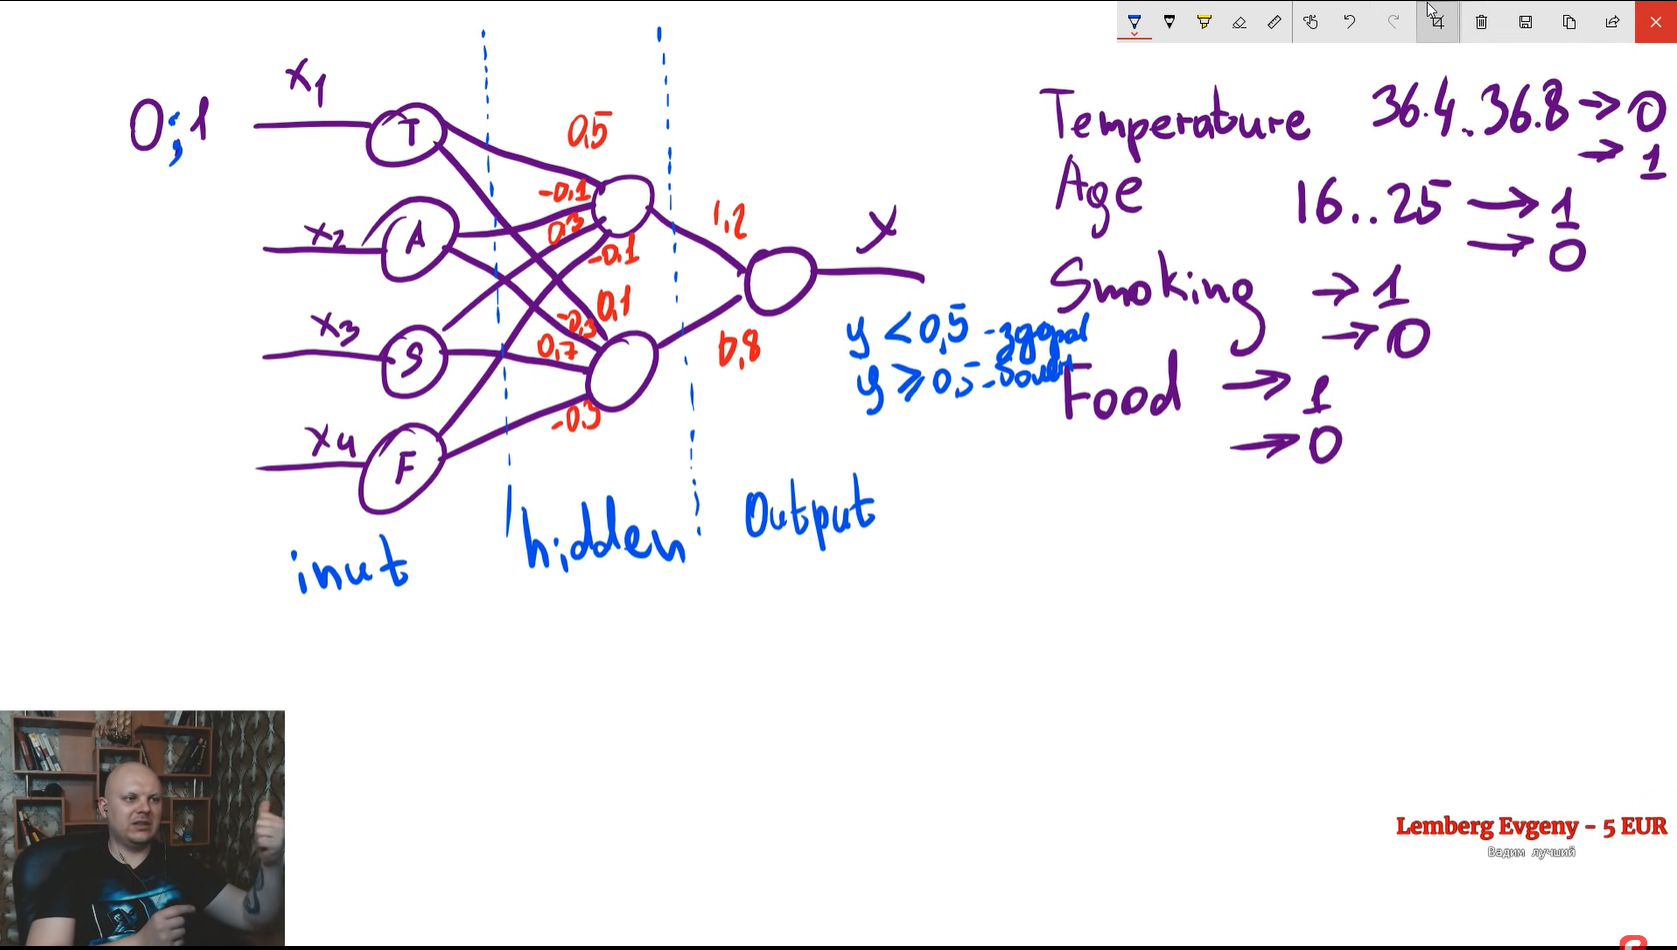 x1
0;1
T
0,5
-0,1
x2
A
0,3
-0,1
1,2
y
x3
S
0,1
-0,3
0,7
0,8
y < 0,5 - здоров
y ≥ 0,5 - болен
x4
F
-0,3
inut
hidden
Output
Temperature 36.4..36.8 → 0
→ 1
Age 16..25 → 1
→ 0
Smoking → 1
→ 0
Food → 1
→ 0
Lemberg Evgeny - 5 EUR
Вадим лучший